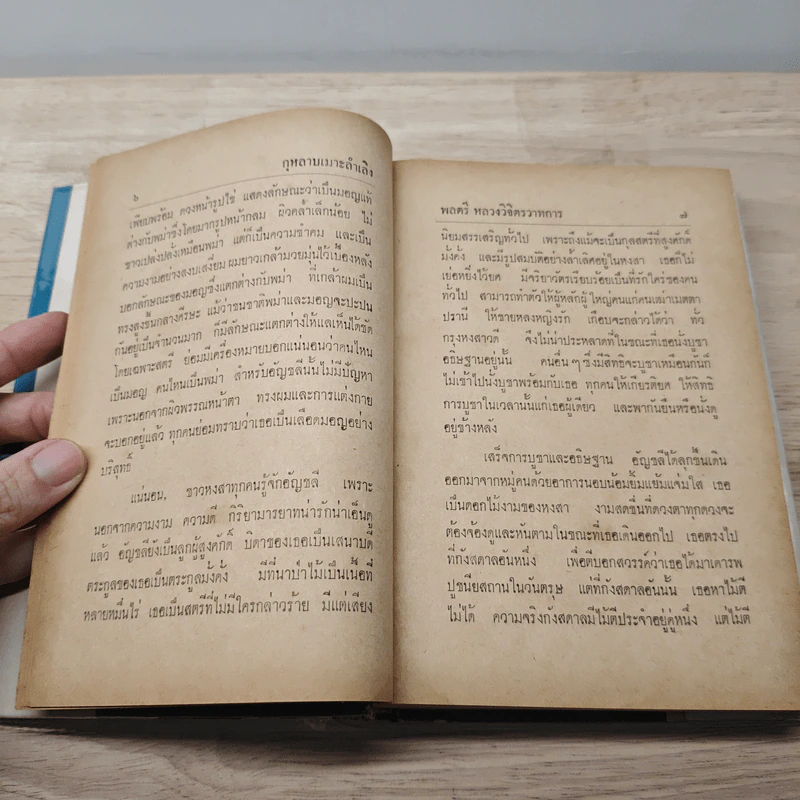 ๖ กุหลาบเมาะลำเลิง
เพียบพร้อม ดวงหน้ารูปไข่ แสดงลักษณะว่าเป็นมอญแท้
ต่างกับพม่าซึ่งโดยมากรูปหน้ากลม ผิวคล้ำเล็กน้อย ไม่
ขาวเปล่งปลั่งเหมือนพม่า แต่ก็เป็นความขำคม และเป็น
ความงามอย่างสงบเสงี่ยม ผมยาวเกล้ามวยมุ่นไว้เบื้องหลัง
บอกลักษณะของมอญซึ่งแตกต่างกับพม่า ที่เกล้าผมเป็น
ทรงสูงขึ้นกลางศีรษะ แม้ว่าชนชาติพม่าและมอญจะปะปน
กันอยู่เป็นจำนวนมาก ก็มีลักษณะแตกต่างให้แลเห็นได้ชัด
โดยเฉพาะสตรี ย่อมมีเครื่องหมายบอกแน่นอนว่าคนไหน
เป็นมอญ คนไหนเป็นพม่า สำหรับอัญชลีนั้นไม่มีปัญหา
เพราะนอกจากผิวพรรณหน้าตา ทรงผมและการแต่งกาย
จะบอกอยู่แล้ว ทุกคนย่อมทราบว่าเธอเป็นเลือดมอญอย่าง
บริสุทธิ์
แน่นอน, ชาวหงสาทุกคนรู้จักอัญชลี เพราะ
นอกจากความงาม ความดี กิริยามารยาทน่ารักน่าเอ็นดู
แล้ว อัญชลียังเป็นลูกผู้สูงศักดิ์ บิดาของเธอเป็นเสนาบดี
ตระกูลของเธอเป็นตระกูลมั่งคั่ง มีที่นาป่าไม้เป็นเนื้อที่
หลายหมื่นไร่ เธอเป็นสตรีที่ไม่มีใครกล่าวร้าย มีแต่เสียง
พลตรี หลวงวิจิตรวาทการ ๗
นิยมสรรเสริญทั่วไป เพราะถึงแม้จะเป็นกุลสตรีที่สูงศักดิ์
มั่งคั่ง และมีรูปสมบัติอย่างล้ำเลิศอยู่ในหงสา เธอก็ไม่
เย่อหยิ่งไว้ยศ มีจริยาวัตรเรียบร้อยเป็นที่รักใคร่ของคน
ทั่วไป สามารถทำตัวให้ผู้หลักผู้ใหญ่คนแก่คนเฒ่าเมตตา
ปรานี ให้ชายหลงหญิงรัก เกือบจะกล่าวได้ว่า ทั่ว
กรุงหงสาวดี จึงไม่น่าประหลาดที่ในขณะที่เธอนั่งบูชา
อธิษฐานอยู่นั้น คนอื่น ๆ ซึ่งมีสิทธิจะบูชาเหมือนกันก็
ไม่เข้าไปนั่งบูชาพร้อมกับเธอ ทุกคนให้เกียรติยศ ให้สิทธิ
การบูชาในเวลานั้นแก่เธอผู้เดียว และพากันยืนหรือนั่งดู
อยู่ข้างหลัง
เสร็จการบูชาและอธิษฐาน อัญชลีได้ลุกขึ้นเดิน
ออกมาจากหมู่คนด้วยอาการนอบน้อมยิ้มแย้มแจ่มใส เธอ
เป็นดอกไม้งามของหงสา งามสดชื่นที่ดวงตาทุกดวงจะ
ต้องจ้องดูและหันตามในขณะที่เธอเดินออกไป เธอตรงไป
ที่กังสดาลอันหนึ่ง เพื่อตีบอกสวรรค์ว่าเธอได้มาเคารพ
ปูชนียสถานในวันตรุษ แต่ที่กังสดาลอันนั้น เธอหาไม้ตี
ไม่ได้ ความจริงกังสดาลมีไม้ตีประจำอยู่คู่หนึ่ง แต่ไม้ตี